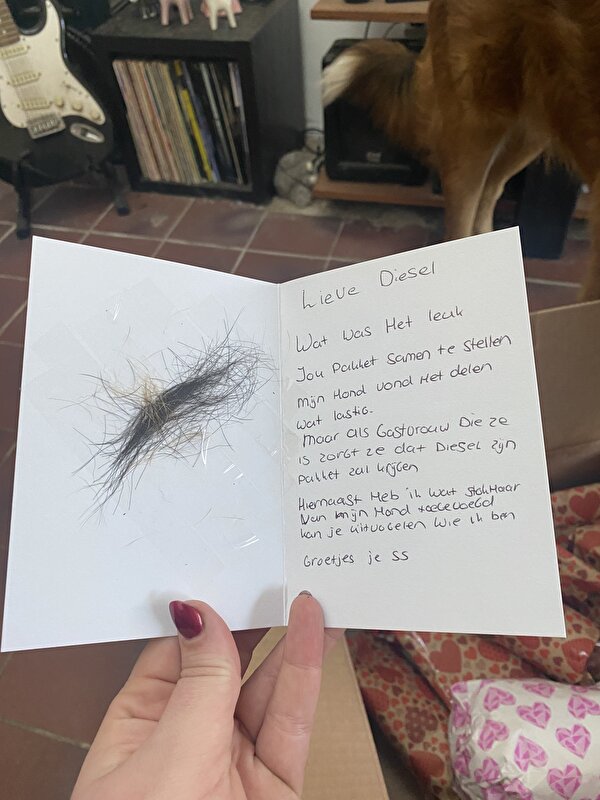 Lieve Diesel
Wat was Het leuk
Jou Pakket samen te stellen
Mijn Hond vond Het delen
wat lastig.
Maar als Gastvrouw Die ze
is zorgt ze dat Diesel zijn
Pakket zal krijgen
Hiernaast Heb ik wat stokHaar
Van mijn Hond toegevoegd
kan je uitvogelen wie ik ben
Groetjes je SS